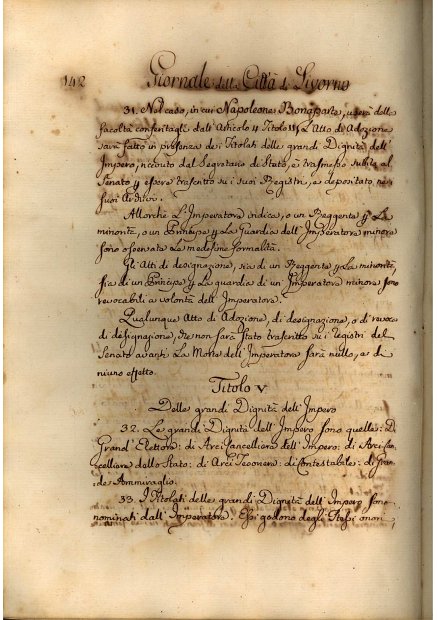 142 Giornale della Città di Livorno
31. Nel caso, in cui Napoleone Bonaparte, userà delle
facoltà conferitagli dall'Articolo 4 Titolo II, L'Atto di Adozione
sarà fatto in presenza dei Titolati delle grandi Dignità dell'
Impero, ricevuto dal Segretario di Stato, e trasmesso subito al
Senato p essere trascritto su i suoi Registri, e depositato nei
suoi Archivi.
Allorchè L'Imperatore indica, o un Reggente p La
minorità, o un Principe p La Guardia dell'Imperatore minore
sono osservate Le medesime formalità.
Gli Atti di designazione, sia di un Reggente p La minorità,
sia di un Principe p La guardia di un Imperatore minore sono
revocabili a volontà dell'Imperatore.
Qualunque Atto di Adozione, di designazione, o di revoca
di designazione, che non sarà stato trascritto su i registri del
Senato avanti La Morte dell'Imperatore sarà nullo, e di
niuno effetto.
Titolo V
Delle grandi Dignità dell'Impero
32. Le grandi Dignità dell'Impero sono quelle: di
Grand'Elettore: di Arci Cancelliere dell'Impero: di Arci Can-
celliere dello Stato: di Arci Tesoriere: di Contestabile: di Gran-
de Ammiraglio.
33. I Titolati delle grandi Dignità dell'Impero sono
nominati dall'Imperatore. Essi godono degli stessi onori,